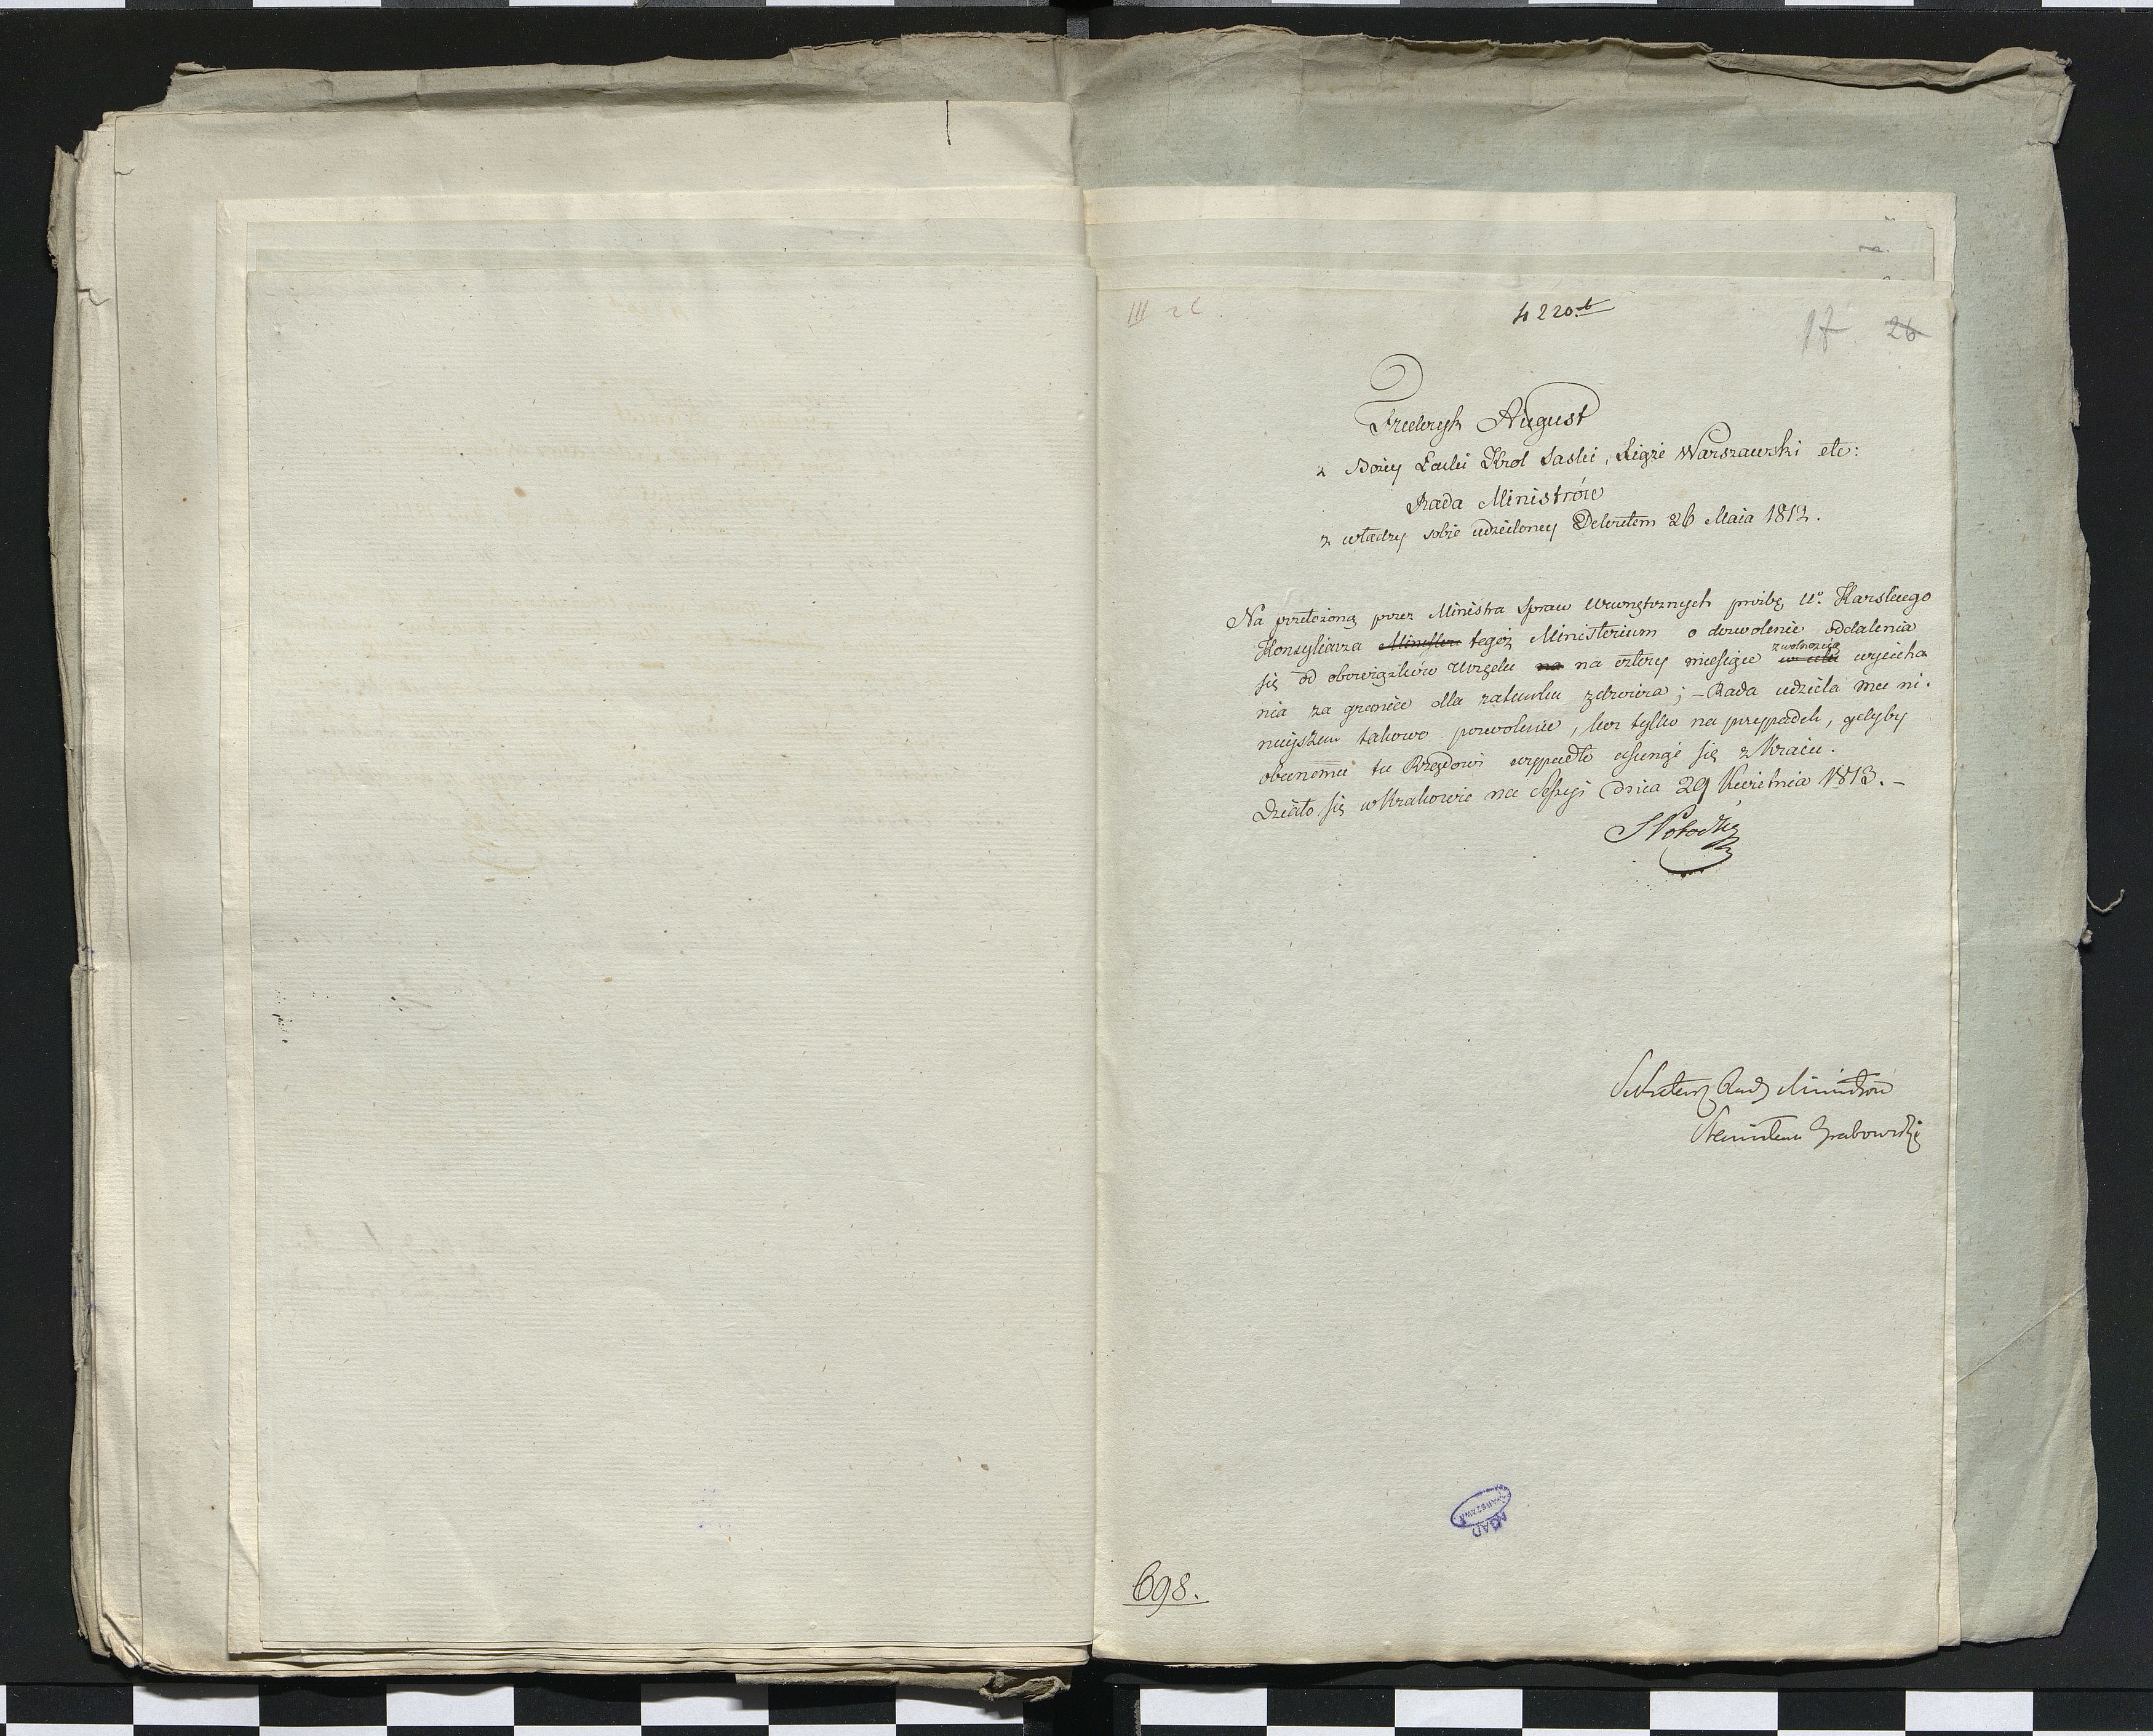 III 26
4220.b
17 26
Fryderyk August
z Bożey Łaski Krol Saski, Xiąże Warszawski etc:
Rada Ministrów
z władzy sobie udzieloney Dekretem 26 Maia 1812.
Na przełożoną przez Ministra Spraw Wewnętrznych prożbę Uo. Karskiego
Konsyliarza Ministra tegoż Ministerium o dozwolenie oddalenia
się od obowiązków Urzędu na na cztery miesiące w celu zwolnością wyiecha
nia za granice dla ratunku zdrowia; – Rada udziela mu ni-
nieyszem takowe pozwolenie, lecz tylko na przypadek, gdyby
obecnemu tu Rządowi wypadło usunąć się z Kraiu.
Działo się w Krakowie na Sessyi dnia 29 Kwietnia 1813. –
S Potocki
Sekretarz Rady Ministrów
Stanisław Grabowski
AGAD
WARSZAWA
698.